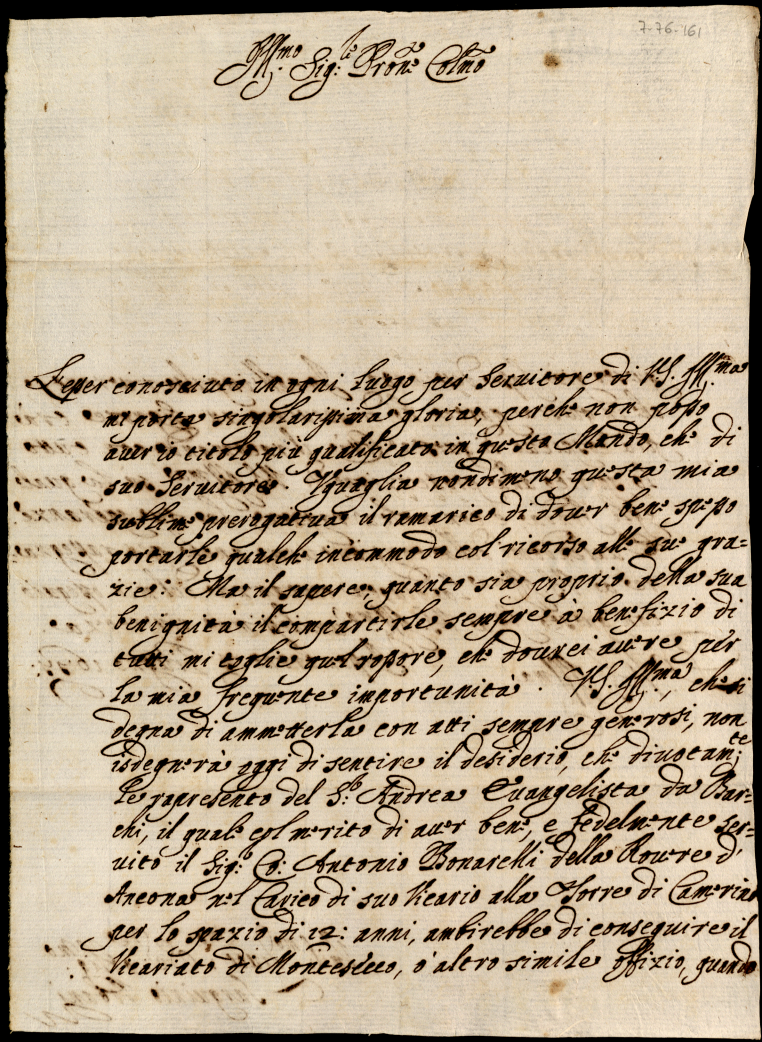 7-76-161
Ill:mo Sig:re Pron:e Colmo
L'esser conosciuto in ogni luogo per Seruitore di V.S. Ill:ma
mi porta singolarissima gloria, perche non posso
auer io titolo più qualificato in questo Mondo, che di
suo Seruitore. Vguaglia nondimeno questa mia
sublime prerogatiua il ramarico di douer bene spesso
portarle qualche incommodo col ricorso alle sue gra=
zie: Ma il sapere, quanto sia proprio della sua
benignità il compartirle sempre à benefizio di
tutti mi toglie quel rossore, che dourei auere per
la mia frequente importunità. V.S. Ill:ma, che si
degna di ammetterla con atti sempre generosi, non
isdegnerà oggi di sentire il desiderio, che diuotam:te
le rapresento del S:r Andrea Euangelista da Bar=
chi, il quale col merito di auer bene, e fedelmente ser=
uito il Sig:r Co: Antonio Bonarelli della Rouere d'
Ancona nel Carico di suo Vicario alla Torre di Camerino
per lo spazio di 12: anni, ambirebbe di conseguire il
Vicariato di Montesecco, ò altro simile offizio, quando